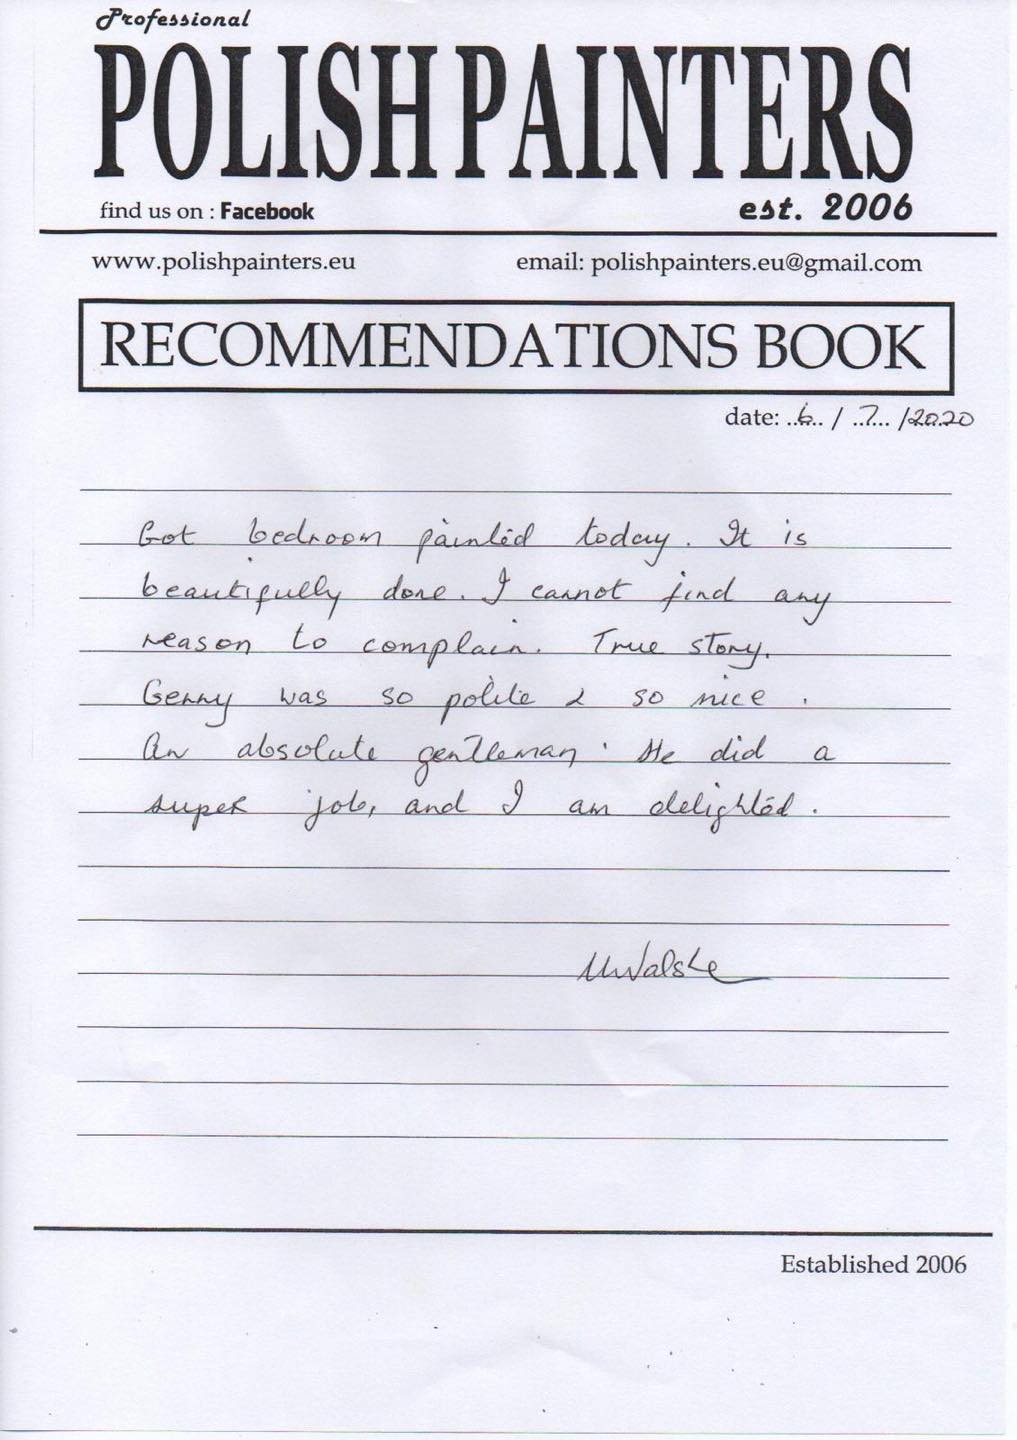 Professional
POLISH PAINTERS
find us on : Facebook
est. 2006
www.polishpainters.eu
email: polishpainters.eu@gmail.com
RECOMMENDATIONS BOOK
date: ..6.. / ..7... /2020
Got bedroom painted today. It is
beautifully done. I cannot find any
reason to complain. True story.
Gerry was so polite & so nice.
An absolute gentleman. He did a
super job, and I am delighted.
Established 2006